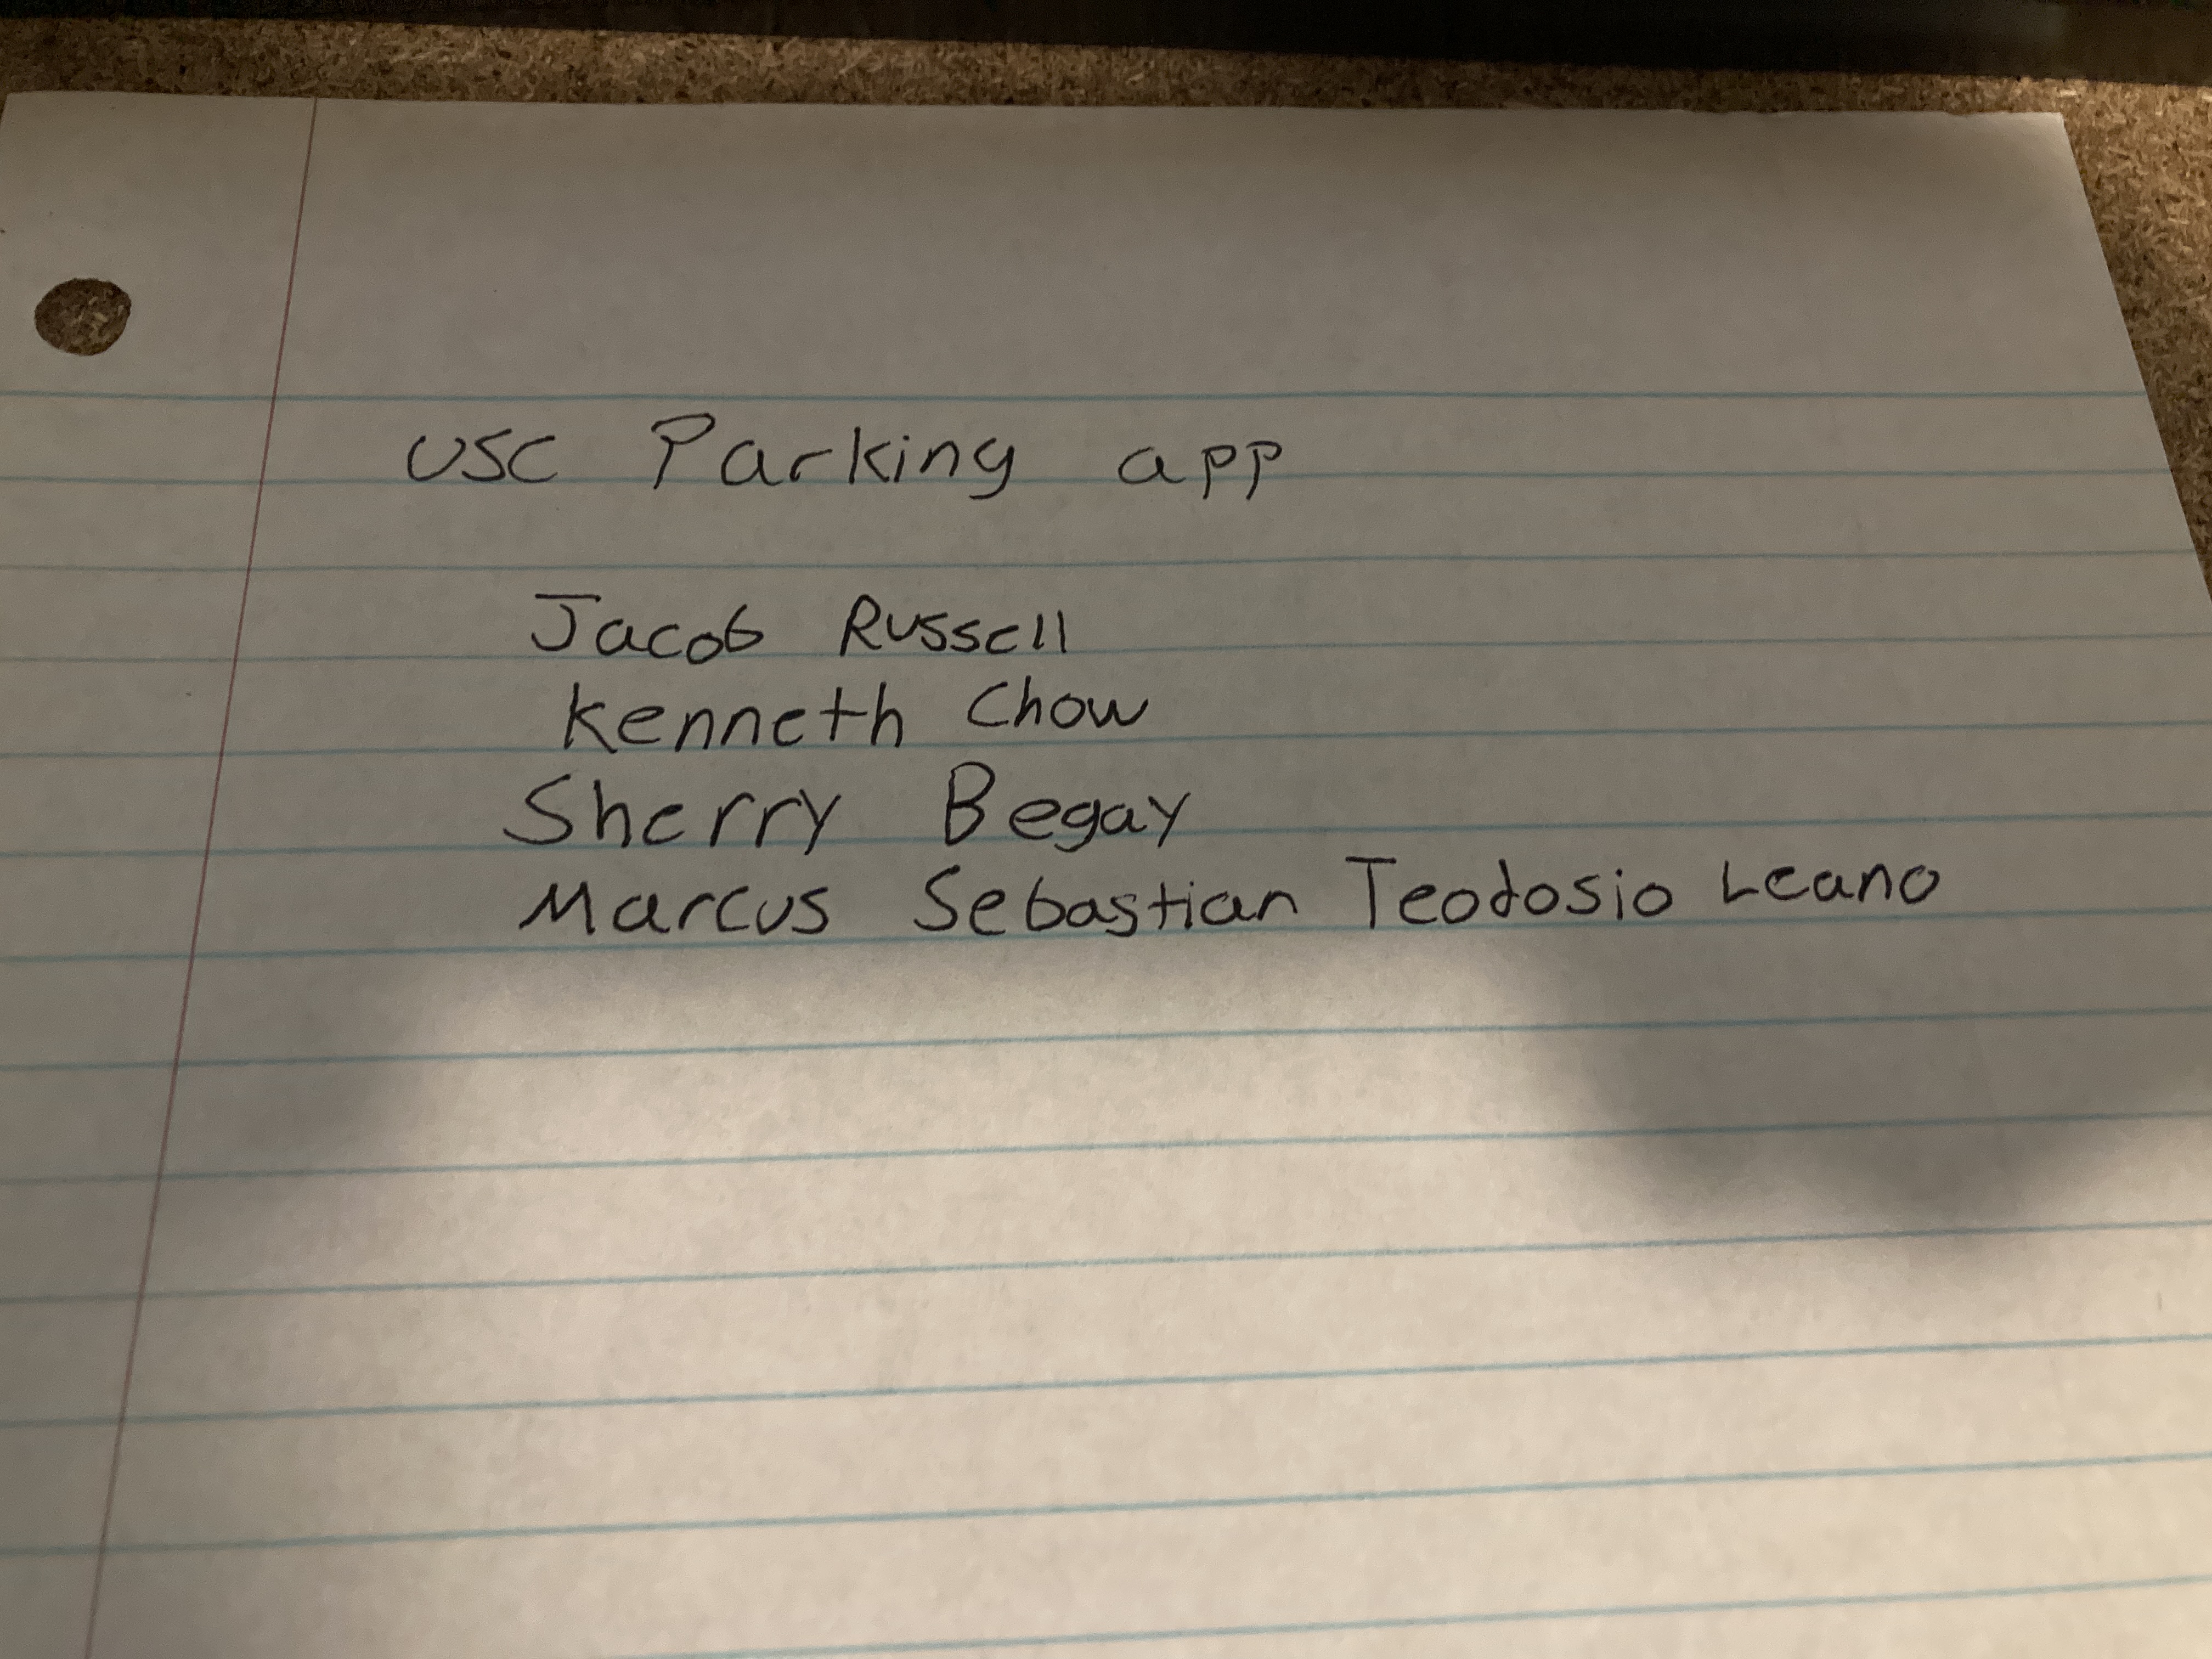 USC Parking app
Jacob Russell
Kenneth Chow
Sherry Begay
Marcus Sebastian Teodosio Leano